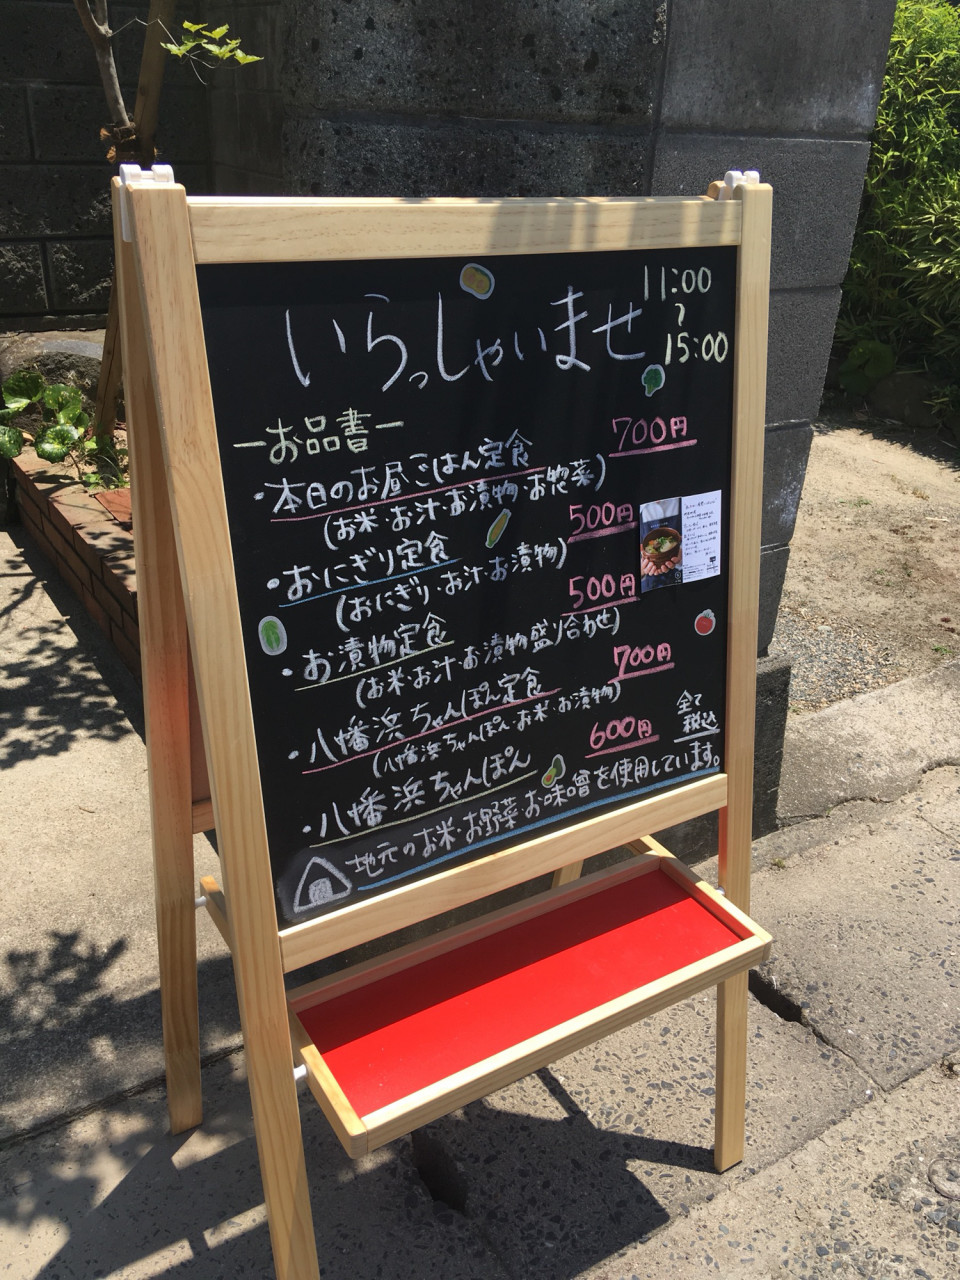 いらっしゃいませ
11:00
〜
15:00
ーお品書ー
・本日のお昼ごはん定食 700円
(お米・お汁・お漬物・お惣菜)
・おにぎり定食 500円
(おにぎり・お汁・お漬物)
・お漬物定食 500円
(お米・お汁・お漬物盛り合わせ)
・八幡浜ちゃんぽん定食 700円
(八幡浜ちゃんぽん・お米・お漬物)
・八幡浜ちゃんぽん 600円
全て
税込
地元のお米・お野菜・お味噌を使用しています。